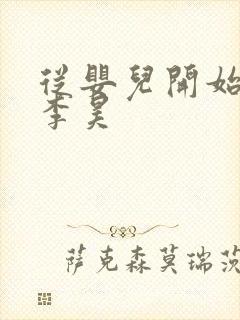 從嬰兒開始
李昊
萨克森莫瑞茨